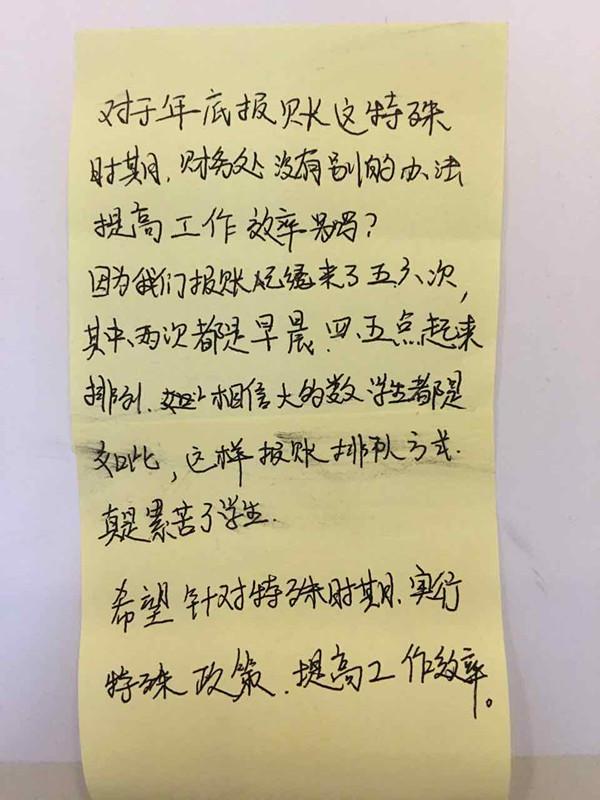 对于年底报账这特殊
时期,财务处没有别的办法
提高工作效率吗?
因为我们报账已经来了五六次,
其中,两次都是早晨四、五点起来
排列. 相信大的数学生都是
如此,这样报账排队方式.
真是累苦了学生.
希望针对特殊时期,实行
特殊政策,提高工作效率。